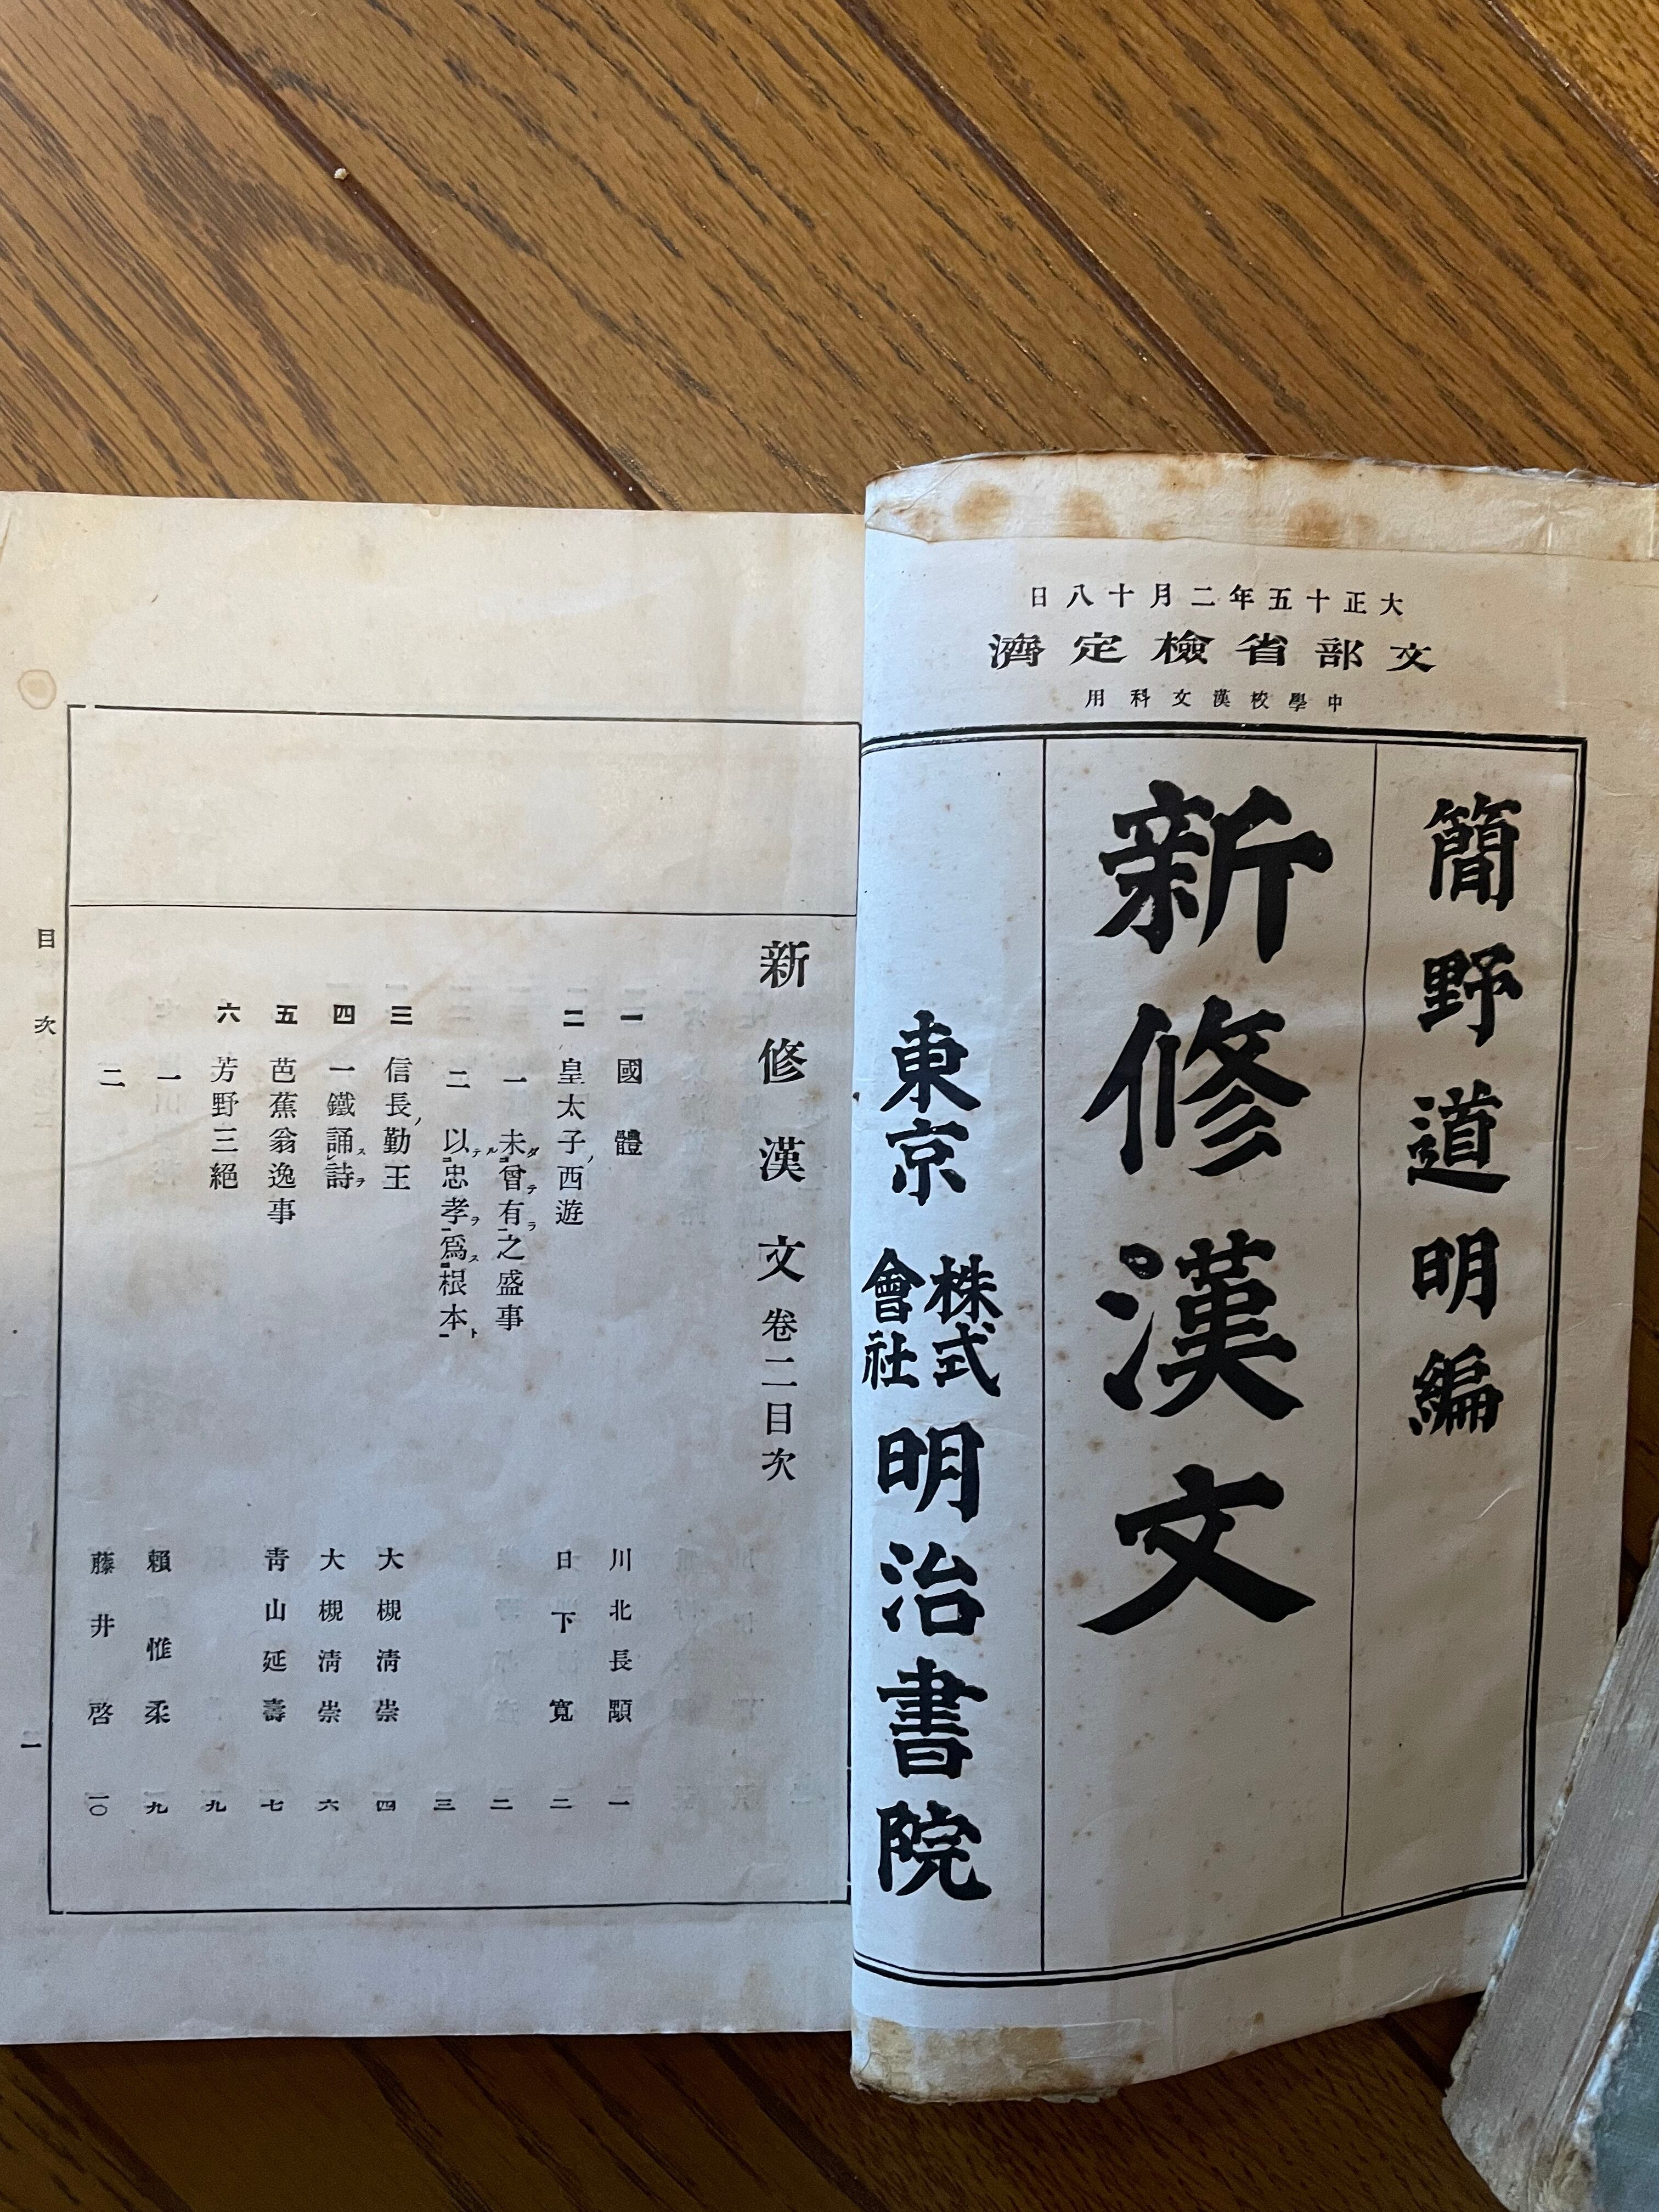 大正十五年二月十八日
文部省檢定濟
中學校漢文科用
簡野道明編
新修漢文
東京 株式會社 明治書院
新修漢文卷二目次
一 國體 川北長顒 一
二 皇太子西遊 日下寬 二
一 未ダルテ曾テ有ラ之盛事 二
二 以テ忠孝ヲ爲ス根本ト 三
三 信長勤王 大槻淸崇 四
四 一鐵誦ス詩ヲ 大槻淸崇 六
五 芭蕉翁逸事 靑山延壽 七
六 芳野三絕 九
一 賴惟柔 九
二 藤井啓 一〇
目次
一